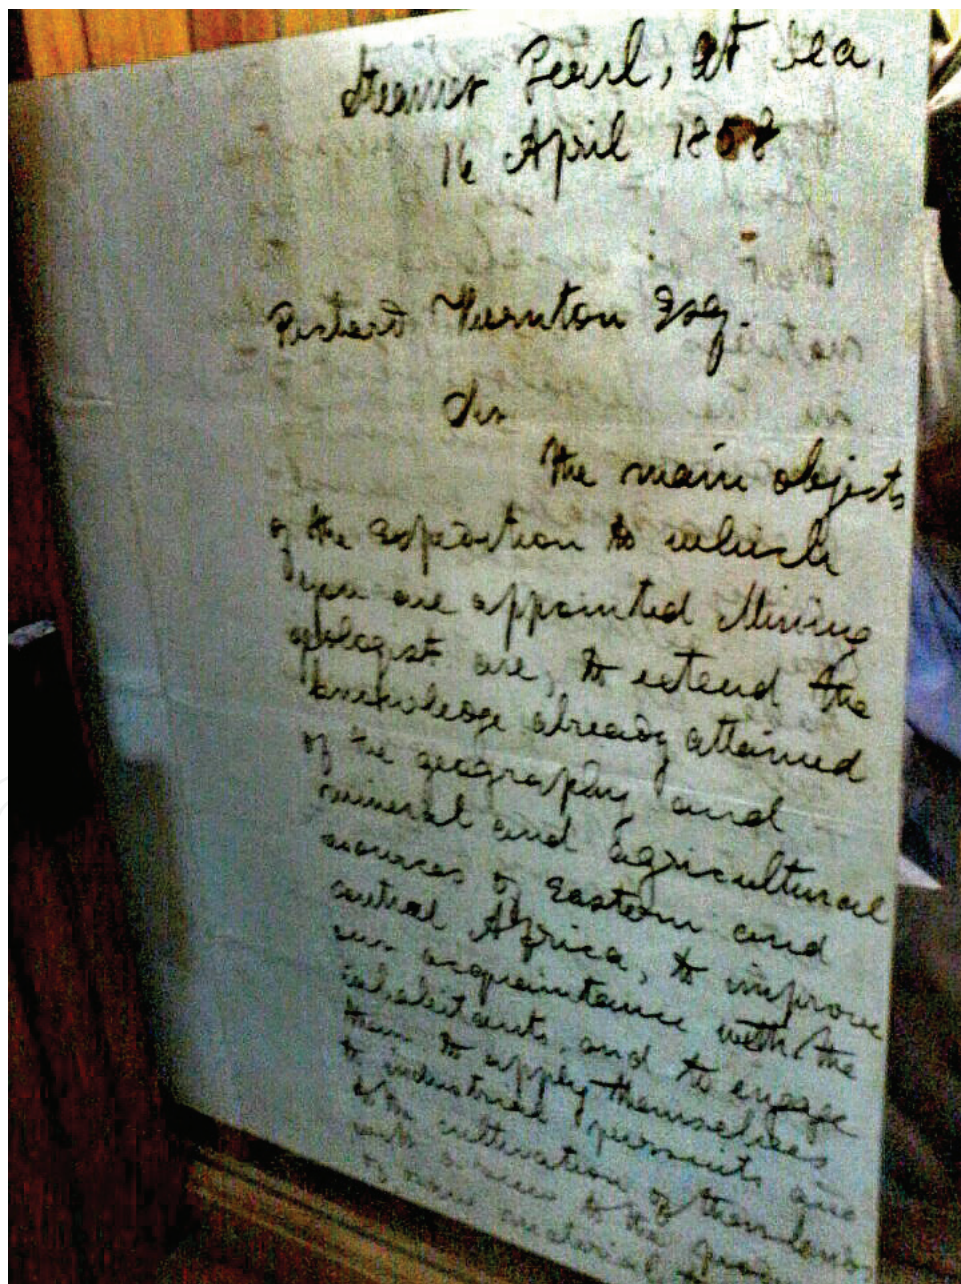 Steamer Pearl, at sea,
16 April 1858
Richard Thornton Esq.
Sir
The main objects
of the Expedition to which
you are appointed Mining
geologist are, to extend the
knowledge already attained
of the geography and
mineral and Agricultural
resources of Eastern and
central Africa, to improve
our acquaintance with the
inhabitants, and to engage
them to apply themselves
to industrial pursuits and
to the cultivation of their lands
with a view to the
of raw material